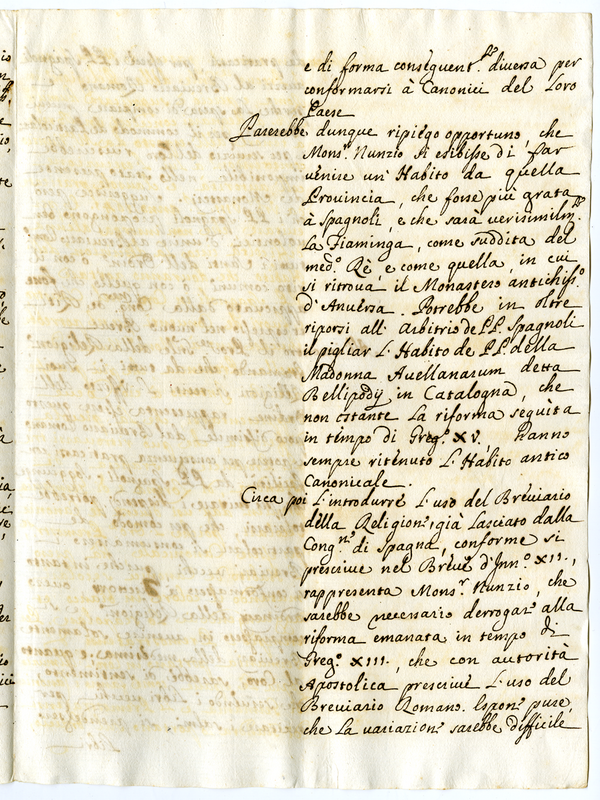 e di forma conseguent.te diversa per
conformarsi à Canonici del loro
Paese
Parerebbe dunque ripiego opportuno, che
Mons.r Nunzio si esibisse di far
venire un' Habito da quella
Provincia, che fosse più grata
à Spagnoli, e che sarà verisimilm.te
la Fiaminga, come suddita del
med.o Rè, e come quella, in cui
si ritrova il Monastero antichiss.o
d'Anversa. Potrebbe in oltre
riporsi all' arbitrio de PP. Spagnoli
il pigliar l'Habito de PP. della
Madonna Avellanarum detta
Bellipodij in Catalogna, che
non ostante la riforma seguita
in tempo di Greg.o XV. hanno
sempre ritenuto l'Habito antico
Canonicale.
Circa poi l'introdurre l'uso del Breviario
della Religion.e, già lasciato dalla
Cong.ne di Spagna, conforme si
prescrive nel Breve d'Inn.o XII.,
rappresenta Mons.r Nunzio, che
sarebbe necessario derogar alla
riforma emanata in tempo di
Greg.o XIII., che con autorità
Apostolica prescrive l'uso del
Breviario Romano. Espon.e pure,
che la variazion.e sarebbe difficile